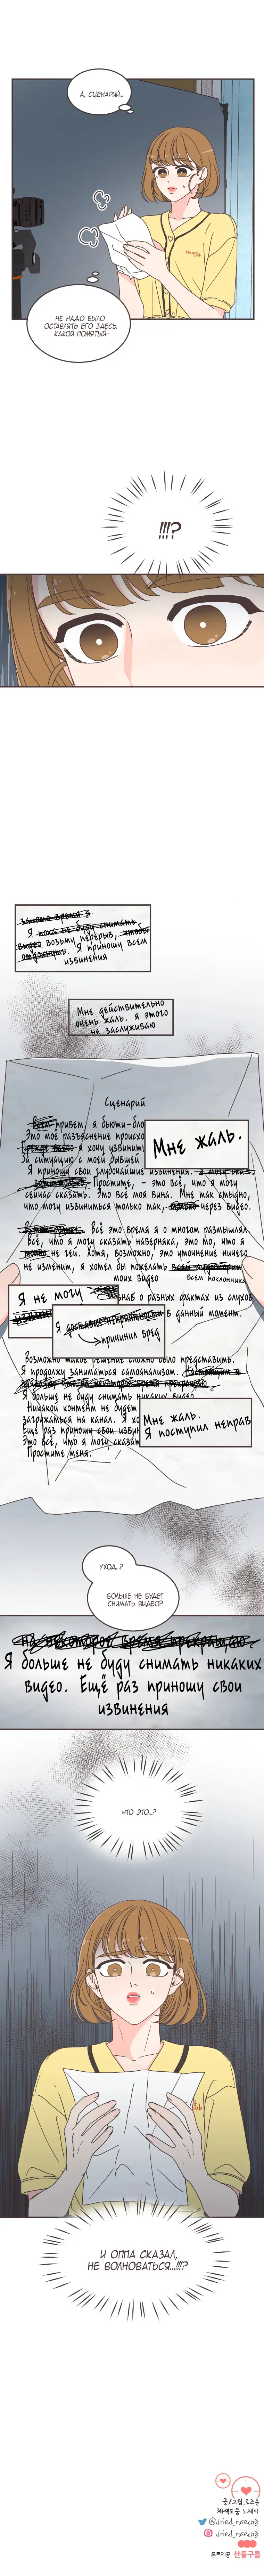 А, СЦЕНАРИЙ...
НЕ НАДО БЫЛО
ОСТАВЛЯТЬ ЕГО ЗДЕСЬ.
КАКОЙ ПОМЯТЫЙ~
!!!?
за это время я
Я пока не буду снимать
видео возьму перерыв, чтобы
отдохнуть. Я приношу всем
извинения
Мне действительно
очень жаль. я этого
не заслуживаю
Сценарий
Всем привет, я бьюти-бло
Это моё разъяснение происхо
Прежде всего я хочу извинит
За ситуацию с моей бывшей
Мне жаль.
Я приношу свои глубочайшие извинения.
Простите, - это всё, что я могу
сейчас сказать. Это всё моя вина. Мне так стыдно,
что могу извиниться только так, через видео.
Всё это время я о многом размышлял.
Всё, что я могу сказать наверняка, это то, что я
не гей. Хотя, возможно, это уточнение ничего
не изменит, я хотел бы пожелать всем
моих видео всем поклонника
Я не могу
о разных фактах из слухов
в данный момент.
Я
причинил вред
Возможно такое решение сложно было представить.
Я продолжу заниматься самоанализом.
на некоторое время прекращаю
Я больше не буду снимать никаких видео.
Никакой контент не будет
загружаться на канал. Я хо
Ещё раз приношу свои извин
Это всё, что я могу сказать
Простите меня.
Мне жаль.
Я поступил неправ
УХОД...?
БОЛЬШЕ НЕ БУДЕТ
СНИМАТЬ ВИДЕО?
на некоторое время прекращаю
Я больше не буду снимать никаких
видео. Ещё раз приношу свои
извинения
ЧТО ЭТО...?
И ОППА СКАЗАЛ,
НЕ ВОЛНОВАТЬСЯ...!!!?
글/그림_로즈옹
채색도움 노제아
@dried_roseong
dried_roseong
폰트제공 산돌구름